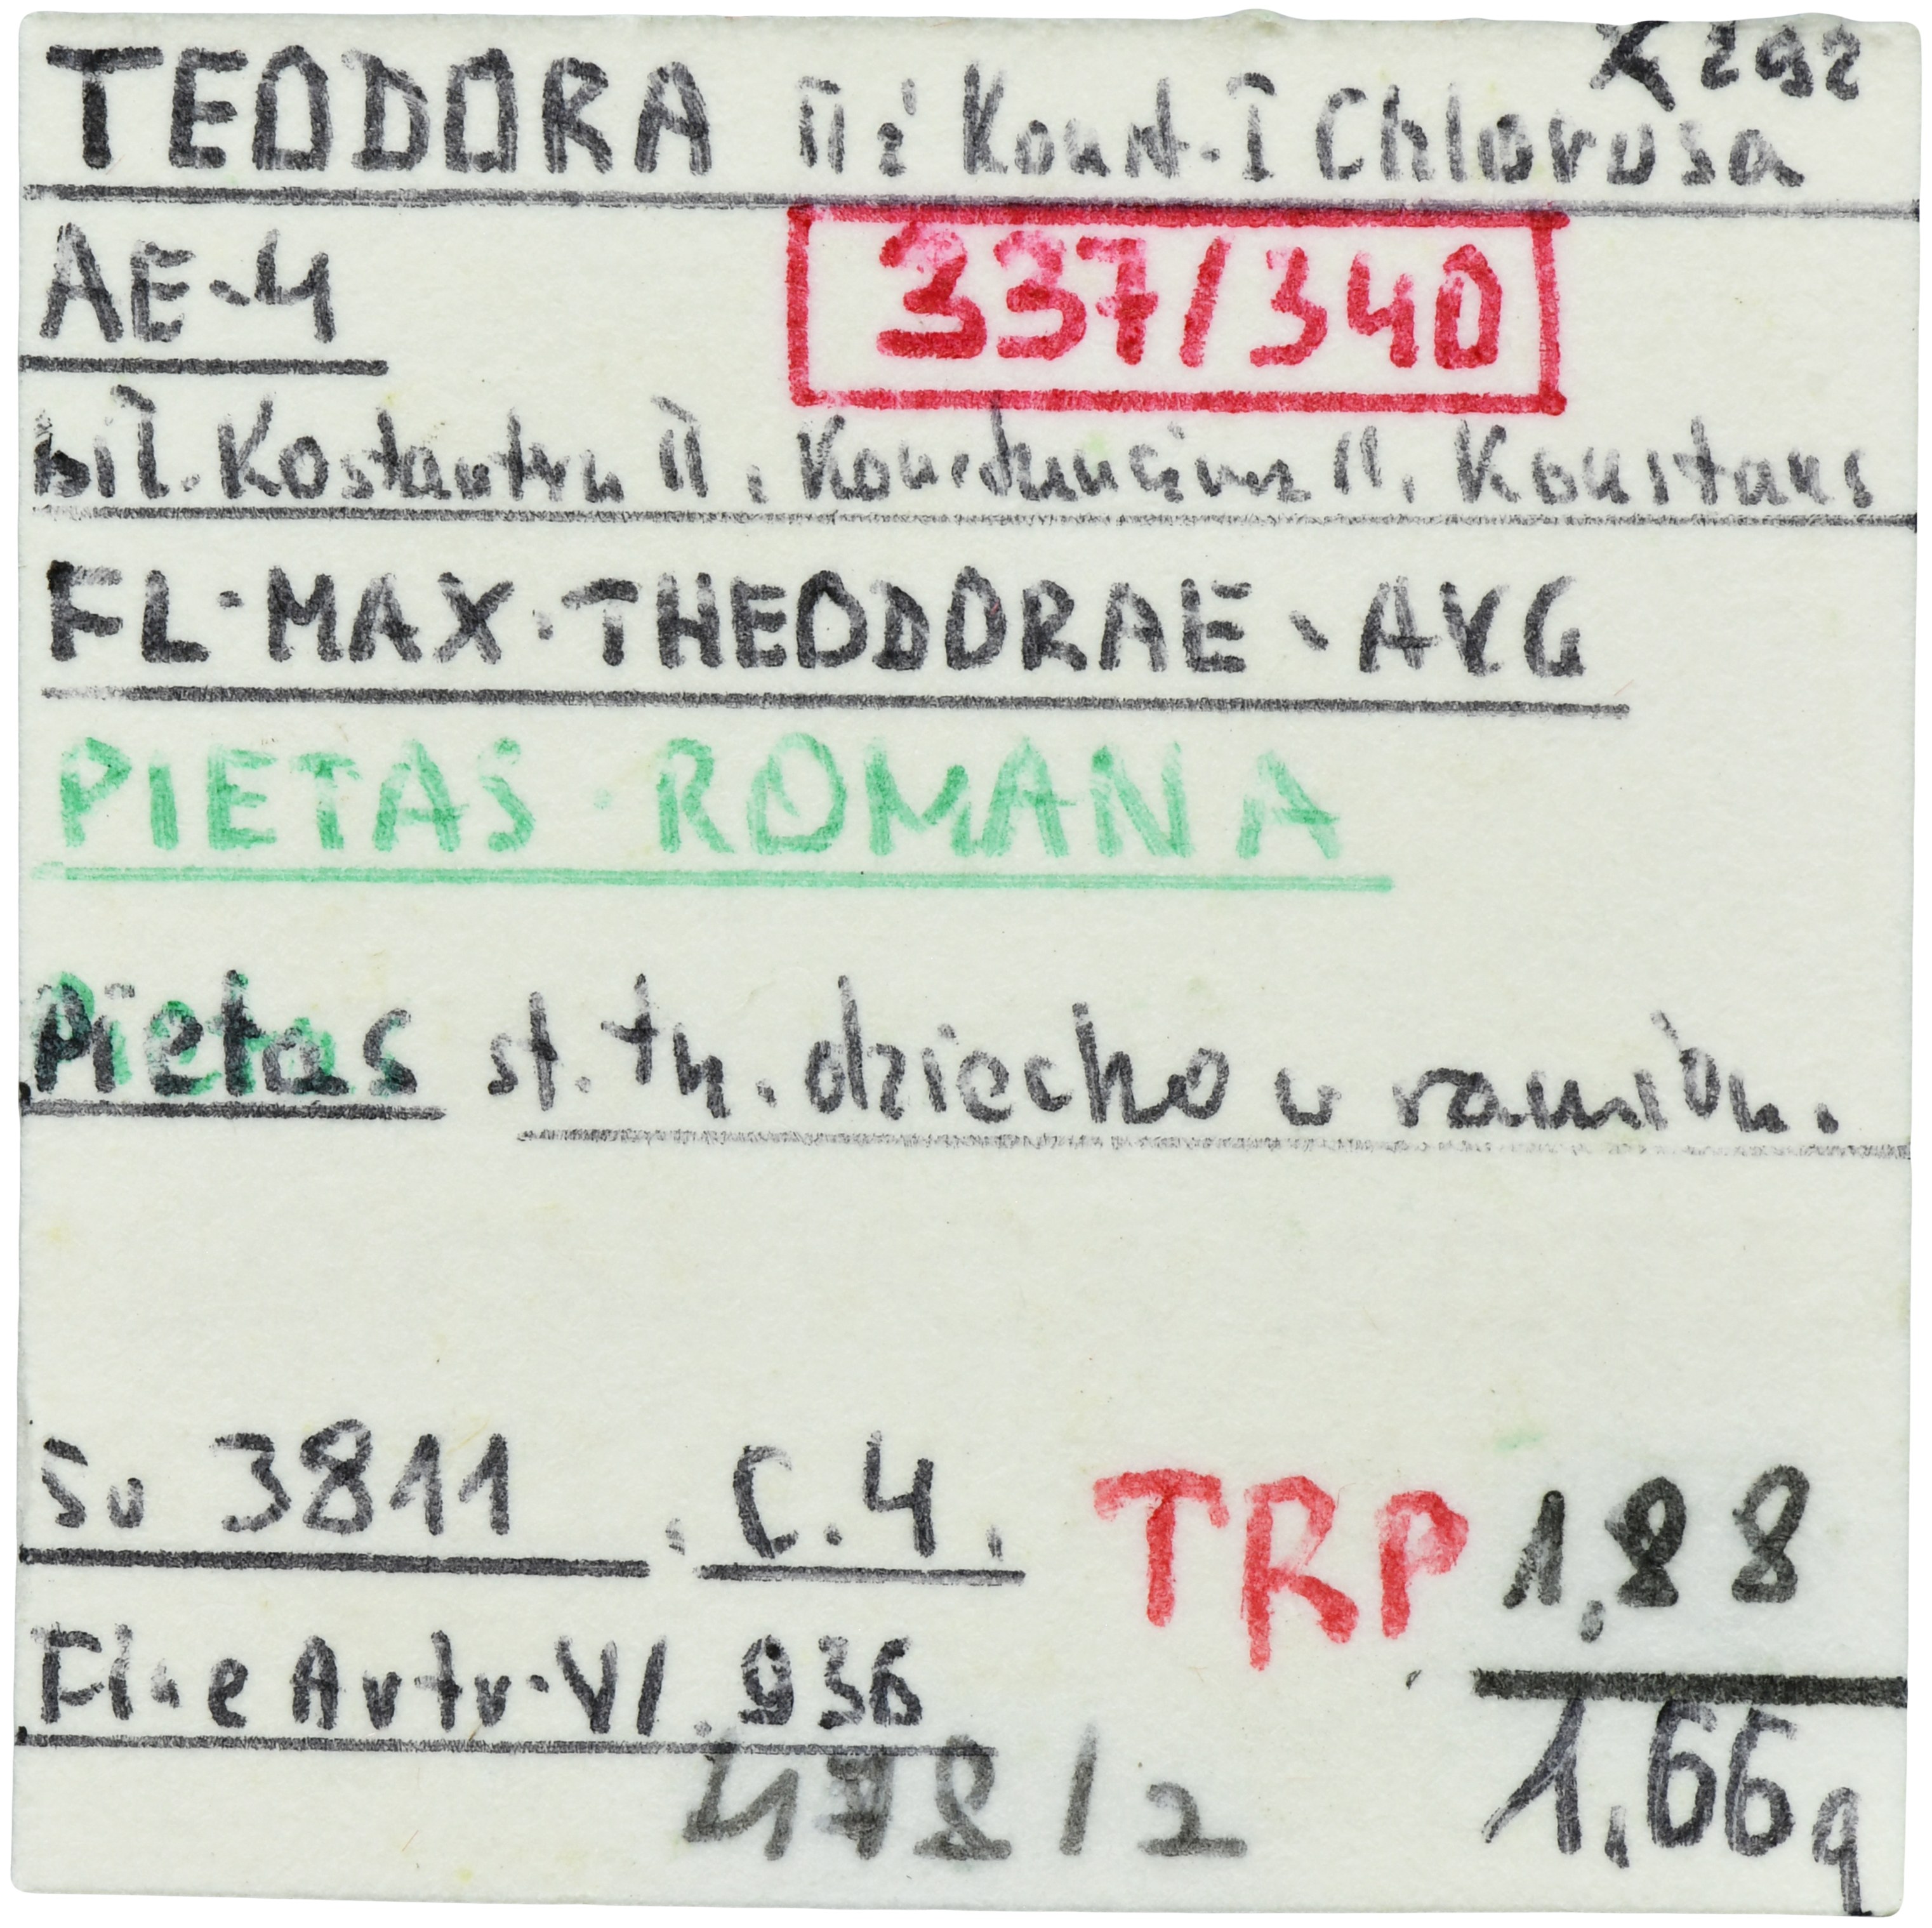 TEODORA II ż Konst. I Chlorusa X 292
AE-4 337/340
bił. Kostantyn II, Konstancjusz II, Konstans
FL·MAX·THEODORAE·AVG
PIETAS·ROMANA
Pietas st. trz. dziecko w ramion.
3811 C.4. TRP 1,88
936 1,66g
478/2